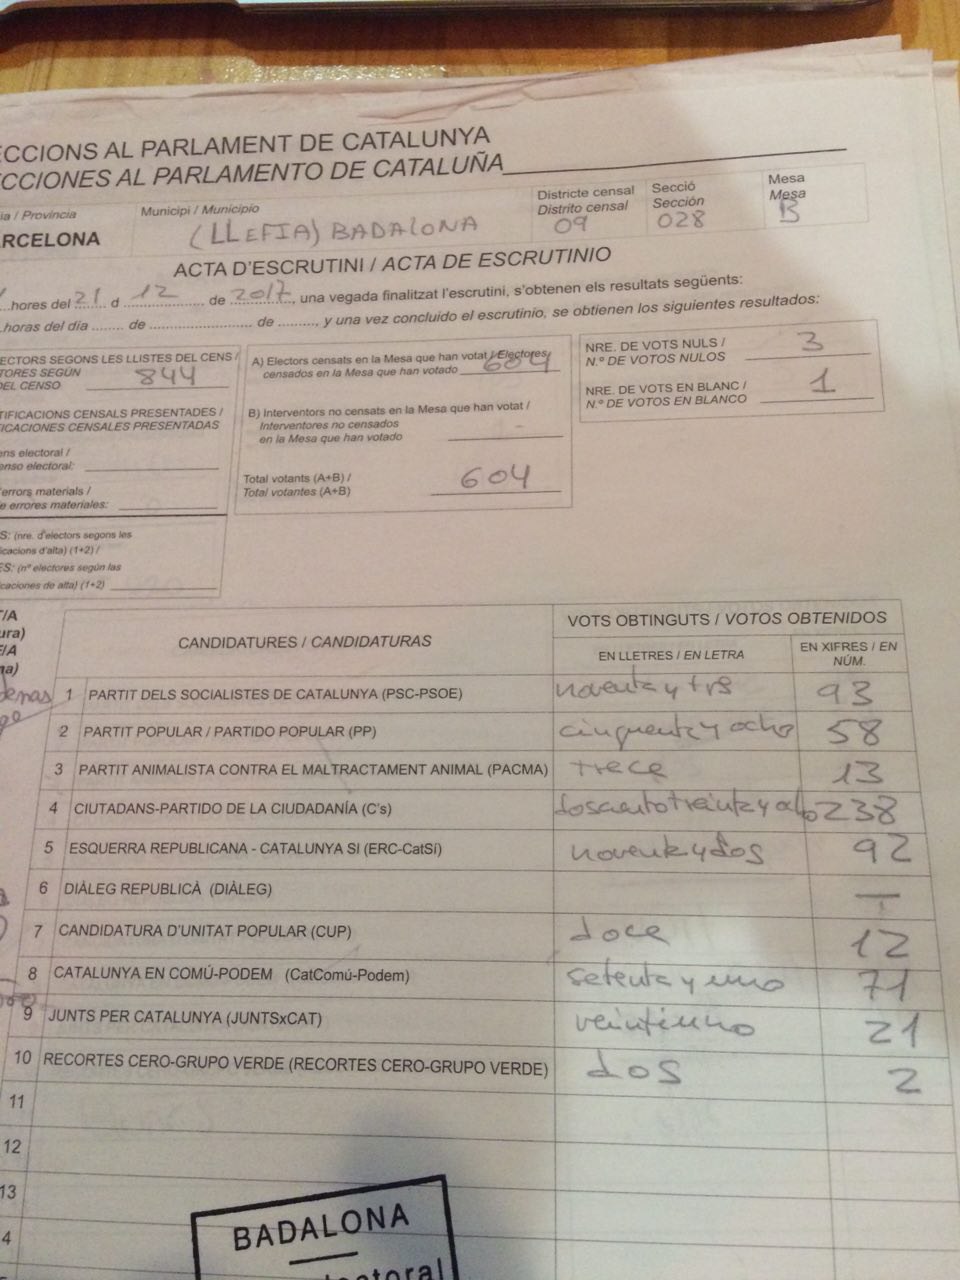 ECCIONS AL PARLAMENT DE CATALUNYA
CCIONES AL PARLAMENTO DE CATALUÑA
ia / Provincia
RCELONA
Municipi / Municipio
(LLEFIA) BADALONA
Districte censal
Distrito censal
09
Secció
Sección
028
Mesa
Mesa
B
ACTA D'ESCRUTINI / ACTA DE ESCRUTINIO
...hores del 21 d 12 de 2017, una vegada finalitzat l'escrutini, s'obtenen els resultats següents:
.horas del día ........ de .......................... de ........., y una vez concluido el escrutinio, se obtienen los siguientes resultados:
ECTORS SEGONS LES LLISTES DEL CENS /
TORES SEGÚN
DEL CENSO 844
TIFICACIONS CENSALS PRESENTADES /
FICACIONES CENSALES PRESENTADAS
ens electoral /
enso electoral:
errors materials /
e errores materiales:
S: (nre. d'electors segons les
icacions d'alta) (1+2) /
ES: (nº electores según las
icaciones de alta) (1+2)
A) Electors censats en la Mesa que han votat / Electores
censados en la Mesa que han votado 604
B) Interventors no censats en la Mesa que han votat /
Interventores no censados
en la Mesa que han votado -
Total votants (A+B) /
Total votantes (A+B) 604
NRE. DE VOTS NULS /
N.º DE VOTOS NULOS 3
NRE. DE VOTS EN BLANC /
N.º DE VOTOS EN BLANCO 1
CANDIDATURES / CANDIDATURAS
VOTS OBTINGUTS / VOTOS OBTENIDOS
EN LLETRES / EN LETRA
EN XIFRES / EN NÚM.
1 PARTIT DELS SOCIALISTES DE CATALUNYA (PSC-PSOE) noventa y trs 93
2 PARTIT POPULAR / PARTIDO POPULAR (PP) cinquenta y ocho 58
3 PARTIT ANIMALISTA CONTRA EL MALTRACTAMENT ANIMAL (PACMA) trece 13
4 CIUTADANS-PARTIDO DE LA CIUDADANÍA (C's) doscientotreinta y ocho 238
5 ESQUERRA REPUBLICANA - CATALUNYA SI (ERC-CatSí) noventa y dos 92
6 DIÀLEG REPUBLICÀ (DIÀLEG) —
7 CANDIDATURA D'UNITAT POPULAR (CUP) doce 12
8 CATALUNYA EN COMÚ-PODEM (CatComú-Podem) setenta y uno 71
9 JUNTS PER CATALUNYA (JUNTSxCAT) veintiuno 21
10 RECORTES CERO-GRUPO VERDE (RECORTES CERO-GRUPO VERDE) dos 2
11
12
13
4
BADALONA